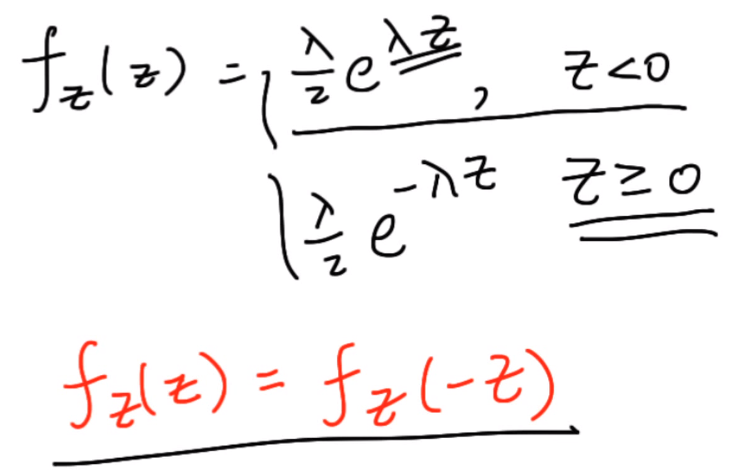 f_z(z) = { λ/2 e^{λz}, z<0
{ λ/2 e^{-λz} z≥0
f_z(z) = f_z(-z)